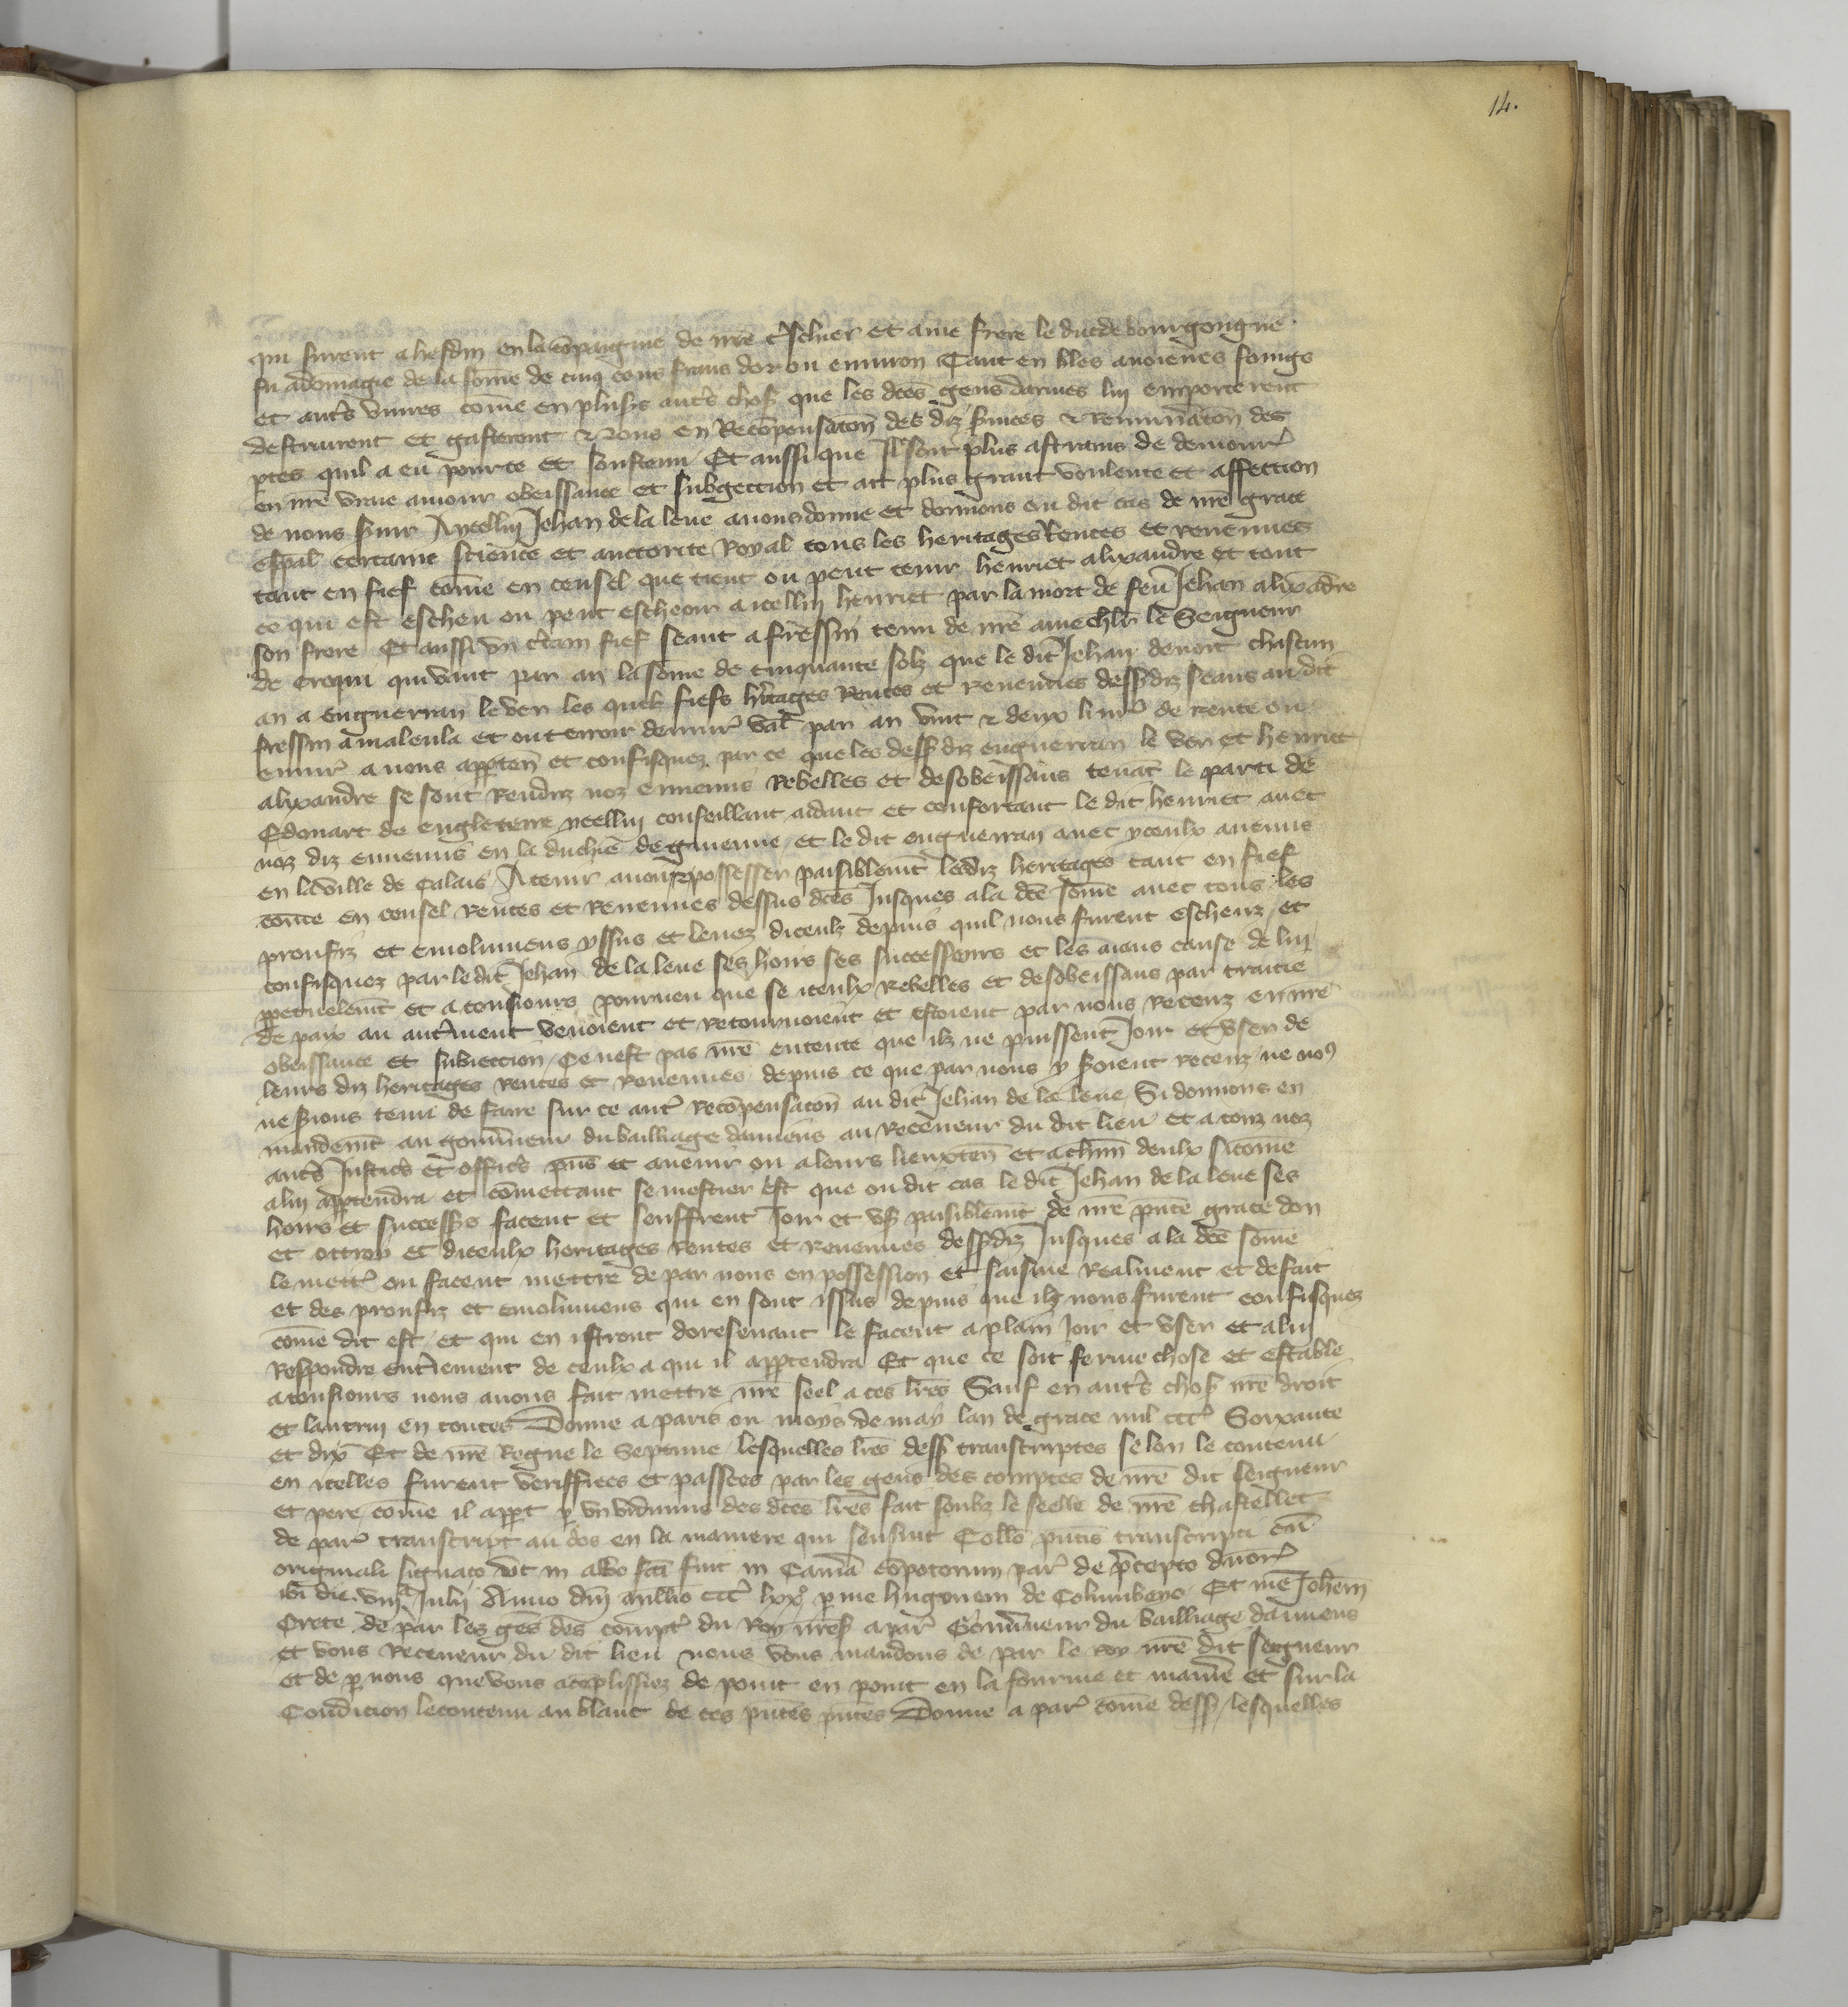 14.
qui furent a hesdin en la cōpaignie de nr̄e treschier et ame frere le duc de bourgongne
fu adōmagie de la sōme de cinq cens frans dor ou environ Tant en bles avoiennes foings
et autˢ vivres cōme en plusʳˢ autˢ chosˢ que les dc̄es gens darmes lui emporterent
destruirent et gasterent & nous en Recōpensacōn des diz ſvices & Remunacōn des
ptes quil a eu pour ce et soustenu Et aussi que Il soit plus astrains de demourʳ
en nr̄e vraie amour obeissance et subgection et ait plus grant voulente et affection
de nous ſvir Aycellui Jehan de la leue avons donne et donnons ou dit cas de nr̄e grace
esp̄al certaine science et auctorite Royal tous les heritages Rentes et revenues
tant en fief cōme en censel que tient ou peut tenir henriet alixandre et tout
ce qui est escheu ou peut escheoir a icellui henriet par la mort de feu Jehan alixādre
son frere Et aussi vn c̄tain fief seant a fressin tenu de nr̄e ame chlr̄ le Seigneur
de Crequi qui vaut par an la sōme de cinquante solz que le dit Jehan devoit chascun
an a enguerran le ver les quelz fiefs hr̄itages Rentes et Revenues dessˢdiz seans au dit
fressin a maleula et ou terroir denvirʳ val̄ par an vint & deux livrˢ de rente ou
envirʳ a nous apꝑten̄ et confisquez par ce que les dessˢdiz enguerran le ver et henriet
alixandre se sont Renduz noz ennemis Rebelles et desobeissans tenāt le parti de
Edouart de engleterre ycellui conseillant aidant et confortant le dit henriet avec
noz diz ennemis en la duchie de guienne et le dit enguerran avec yceulx ennemis
en la ville de Calais A tenir avoir & possesser paisiblemt̄ lesdiz heritages tant en fief
cōme en censel Rentes et Revenues dessus dc̄es Jusques a la dc̄e sōme avec tous les
proufiz et emolumens yssus et levez diceulz depuis quil nous furent escheuz et
confisquez par le dit Jehan de la leue ses hoirs ses successeurs et les aians cause de lui
ꝑpetuelemt̄ et a tousiours pourveu que se iceulx Rebelles et desobeissans par traitie
de paix au autrement venoient et retournoient et estoient par nous receuz en nr̄e
obeissance et subiection Ce nest pas nr̄e entente que ilz ne puissent Joir et vser de
leurs diz heritages rentes et Revenues depuis ce que par nous y seroient receuz ne noꝰ
ne ſions tenu de faire sur ce autʳ Recōpensacōn au dit Jehan de la leue Si donnons en
mandemt̄ au gouv̄neur du bailliage damiens au Receveur du dit lieu et a touz noz
autˢ Justicˢ et officˢ pn̄s et avenir ou a leurs lieuxten̄ et a chm̄ deulx sicōme
a lui apꝑtendra et cōmettant se mestier est que ou dit cas le dit Jehan de la leue ses
hoirs et successʳˢ facent et seuffrent Joir et vsˢ paisiblemt̄ de nr̄e pn̄te grace don
et ottroy et diceulx heritages Rentes et Revenues dessˢdiz Jusques a la dc̄e sōme
le mettʳ ou facent mettre de par nous en possession et saisine Realment et de fait
et des proufiz et emolumens qui en sont issus depuis que ilz nous furent confisquez
cōme dit est et qui en istront doresenavant le facent a plain Joir et vser et a lui
Respondre entierement de ceulx a qui il apꝑtendra Et que ce soit ferme chose et estable
a tousiours nous avons fait mettre nr̄e seel a ces lr̄es Sauf en autˢ chosˢ nr̄e droit
et lautrui en toutes Donne a paris ou moys de may lan de grace mil cccꝰ Soixante
et dix Et de nr̄e Regne le Septime lesquelles lr̄es dessˢ transcriptes selon le contenu
en icelles furent veriffiees et passees par les gens des comptes de nr̄e dit seigneur
et pere cōme il appt ꝑ vn vidimus des dc̄es lr̄es fait soubz le seelle de nr̄e chastellet
de parˢ transcript au dos en la maniere qui sensuit Collō pn̄tis transcripti cū
originali signato vt in albo fc̄a fuit in Cam̄a cōpotorum parˢ de p̄cepto dn̄orʳ
ibi die viijᵃ Julij Anno dn̄i millio cccꝰ lxxº ꝑ me hugonem de Columbeyo Et me Joh̄em
Crete de par les gēs des comptˢ du Roy nr̄es̄ a parˢ Gouv̄neur du bailliage damiens
et vous Receveur du dit lieu nous vous mandons de par le Roy nr̄e dit seigneur
et de ꝑ nous que vous acōplissiez de point en point en la fourme et manie̅ et sur la
Condicion le contenu au blanc de ces pn̄tes pn̄tes Donne a parˢ cōme dessˢ lesquelles